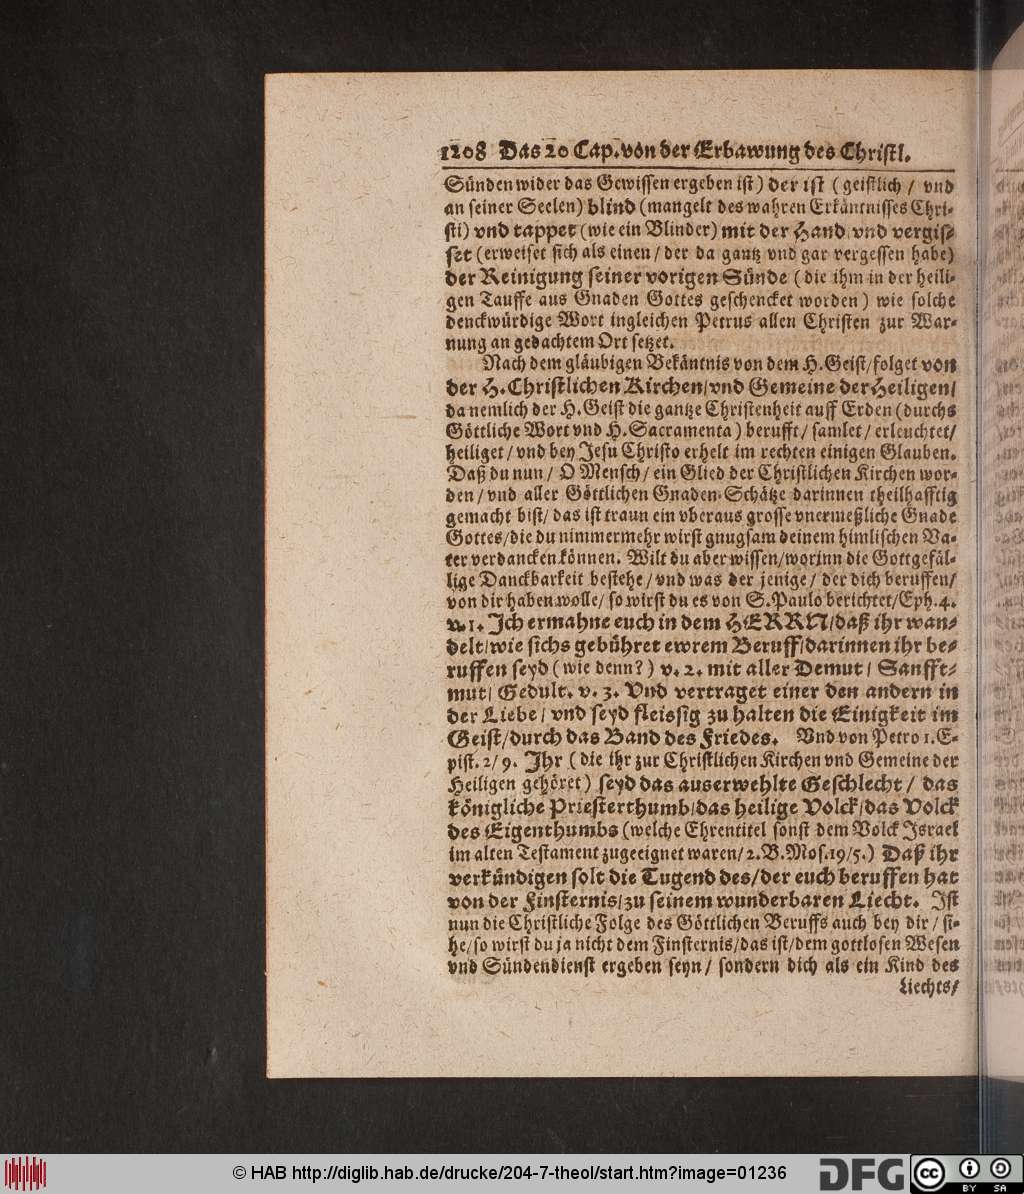 1208 Das 20 Cap. von der Erbawung des Christl.
Sünden wider das Gewissen ergeben ist) der ist (geistlich / vnd
an seiner Seelen) blind (mangelt des wahren Erkäntnisses Chri-
sti) vnd tappet (wie ein Blinder) mit der Hand / vnd vergis-
set (erweiset sich als einen / der da gantz vnd gar vergessen habe)
der Reinigung seiner vorigen Sünde (die ihm in der heili-
gen Tauffe aus Gnaden Gottes geschencket worden) wie solche
denckwürdige Wort ingleichen Petrus allen Christen zur War-
nung an gedachtem Ort setzet.
Nach dem gläubigen Bekäntnis von dem H. Geist / folget von
der H. Christlichen Kirchen / vnd Gemeine der Heiligen /
da nemlich der H. Geist die gantze Christenheit auff Erden (durchs
Göttliche Wort vnd H. Sacramenta) berufft / samlet / erleuchtet /
heiliget / vnd bey Jesu Christo erhelt im rechten einigen Glauben.
Daß du nun / O Mensch / ein Glied der Christlichen Kirchen wor-
den / vnd aller Göttlichen Gnaden-Schätze darinnen theilhafftig
gemacht bist / das ist traun ein vberaus grosse vnermeßliche Gnade
Gottes / die du nimmermehr wirst gnugsam deinem himlischen Va-
ter verdancken können. Wilt du aber wissen / worinn die Gottgefäl-
lige Danckbarkeit bestehe / vnd was der jenige / der dich beruffen /
von dir haben wolle / so wirst du es von S. Paulo berichtet / Eph. 4.
v. 1. Jch ermahne euch in dem HERRN / daß ihr wan-
delt / wie sichs gebühret ewrem Beruff / darinnen ihr be-
ruffen seyd (wie denn?) v. 2. mit aller Demut / Sanfft-
mut / Gedult. v. 3. Vnd vertraget einer den andern in
der Liebe / vnd seyd fleissig zu halten die Einigkeit im
Geist / durch das Band des Friedes. Vnd von Petro 1. E-
pist. 2 / 9. Jhr (die ihr zur Christlichen Kirchen vnd Gemeine der
Heiligen gehöret) seyd das auserwehlte Geschlecht / das
königliche Priesterthumb / das heilige Volck / das Volck
des Eigenthumbs (welche Ehrentitel sonst dem Volck Jsrael
im alten Testament zugeeignet waren / 2. B. Mos. 19 / 5.) Daß ihr
verkündigen solt die Tugend des / der euch beruffen hat
von der Finsternis / zu seinem wunderbaren Liecht. Jst
nun die Christliche Folge des Göttlichen Beruffs auch bey dir / si-
he / so wirst du ja nicht dem Finsternis / das ist / dem gottlosen Wesen
vnd Sündendienst ergeben seyn / sondern dich als ein Kind des
Liechts /
© HAB http://diglib.hab.de/drucke/204-7-theol/start.htm?image=01236
DFG
cc BY SA